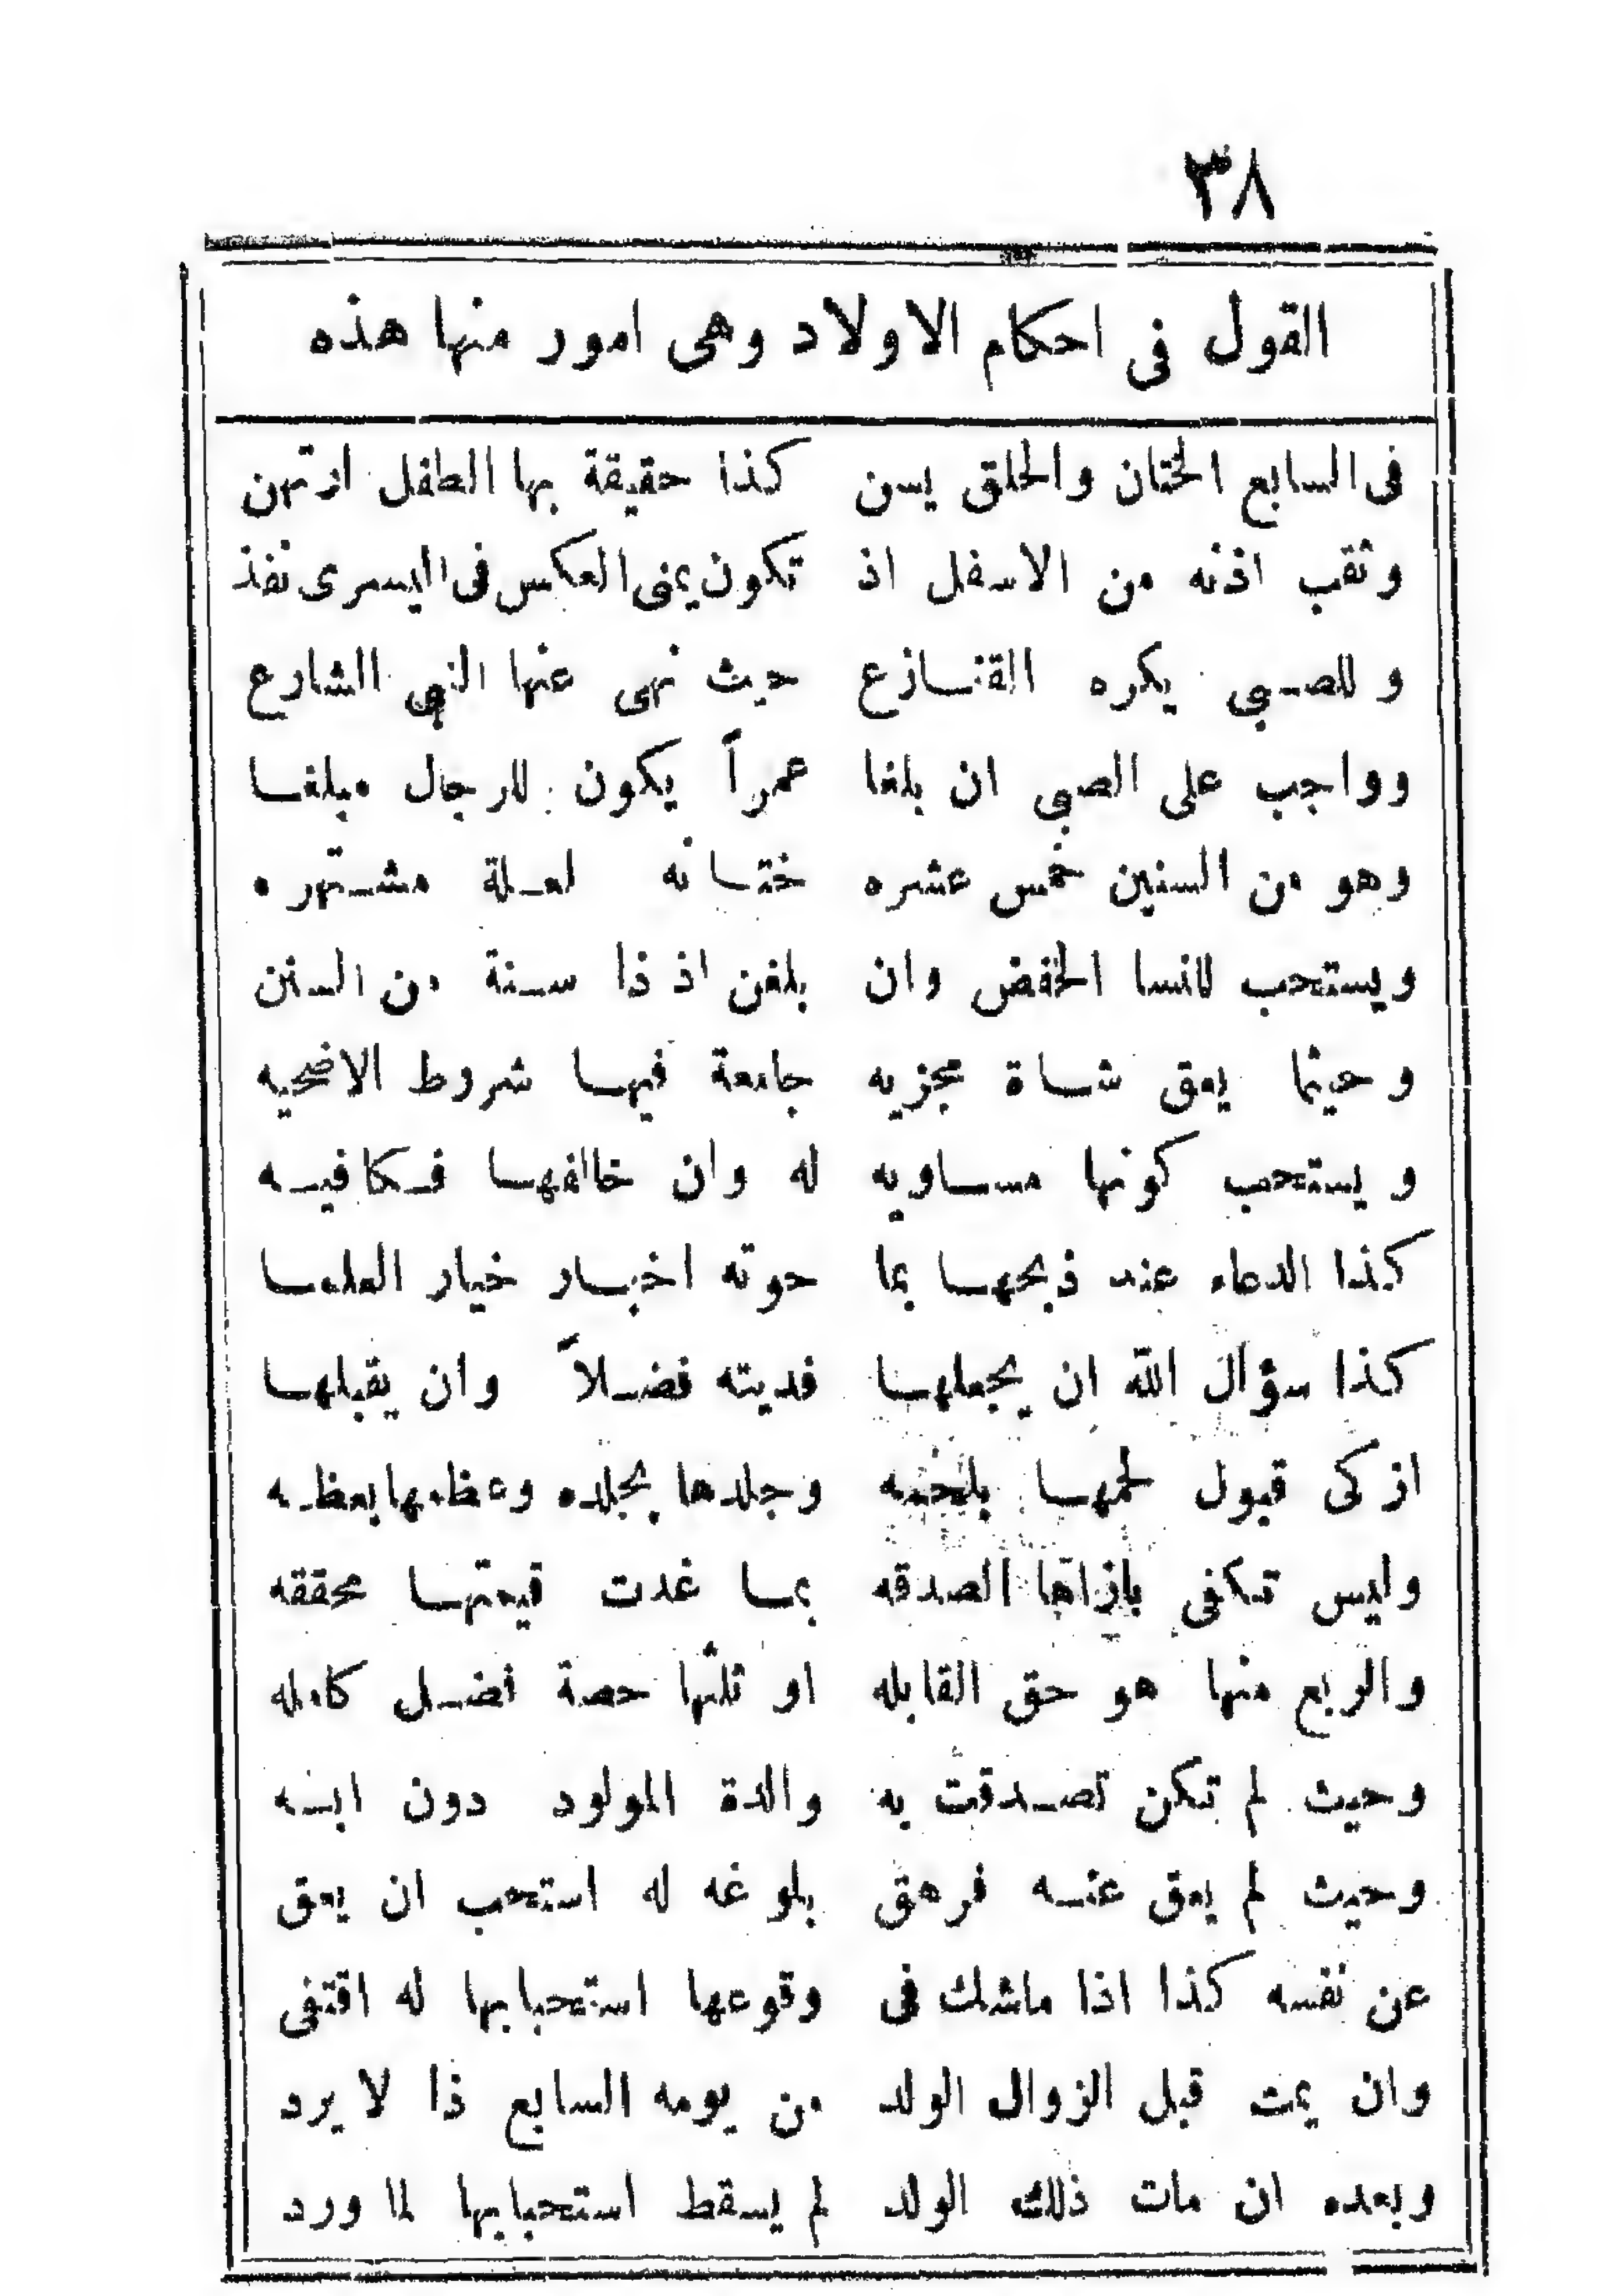 ٣٨
القول فى احكام الاولاد وهى امور منها هذه
فى السابع الختان والحلق يسن كذا حقيقة بها الطفل ارتهن
وثقب اذنه من الاسفل اذ تكون يمنى العكس فى اليسرى نفذ
وللصبى يكره القنازع حيث نهى عنها النبى الشارع
وواجب على الصبى ان بلغا عمراً يكون للرجال مبلغا
وهو من السنين خمس عشره ختانه لعلة مشتهره
ويستحب للنسا الخفض وان بلغن اذ ذا سنة من السنن
وحيثما يعق شاة مجزيه جامعة فيها شروط الاضحيه
ويستحب كونها مساويه له وان خالفها فكافيه
كذا الدعاء عند ذبحها بما حوته اخبار خيار العلما
كذا سؤال الله ان يجعلها فديته فضلاً وان يقبلها
ازكى قبول لحمها بلحمه وجلدها بجلده وعظمها بعظمه
وليس تكفى بازاها الصدقه بما غدت قيمتها محققه
والربع منها هو حق القابله او ثلثها حصة فضل كامله
وحيث لم تكن تصدقت به والدة المولود دون ابنه
وحيث لم يعق عنه فرهق بلوغه له استحب ان يعق
عن نفسه كذا اذا ماشك فى وقوعها استحبابها له اقتفى
وان يمت قبل الزوال الولد من يومه السابع ذا لا يرد
وبعده ان مات ذلك الولد لم يسقط استحبابها لما ورد